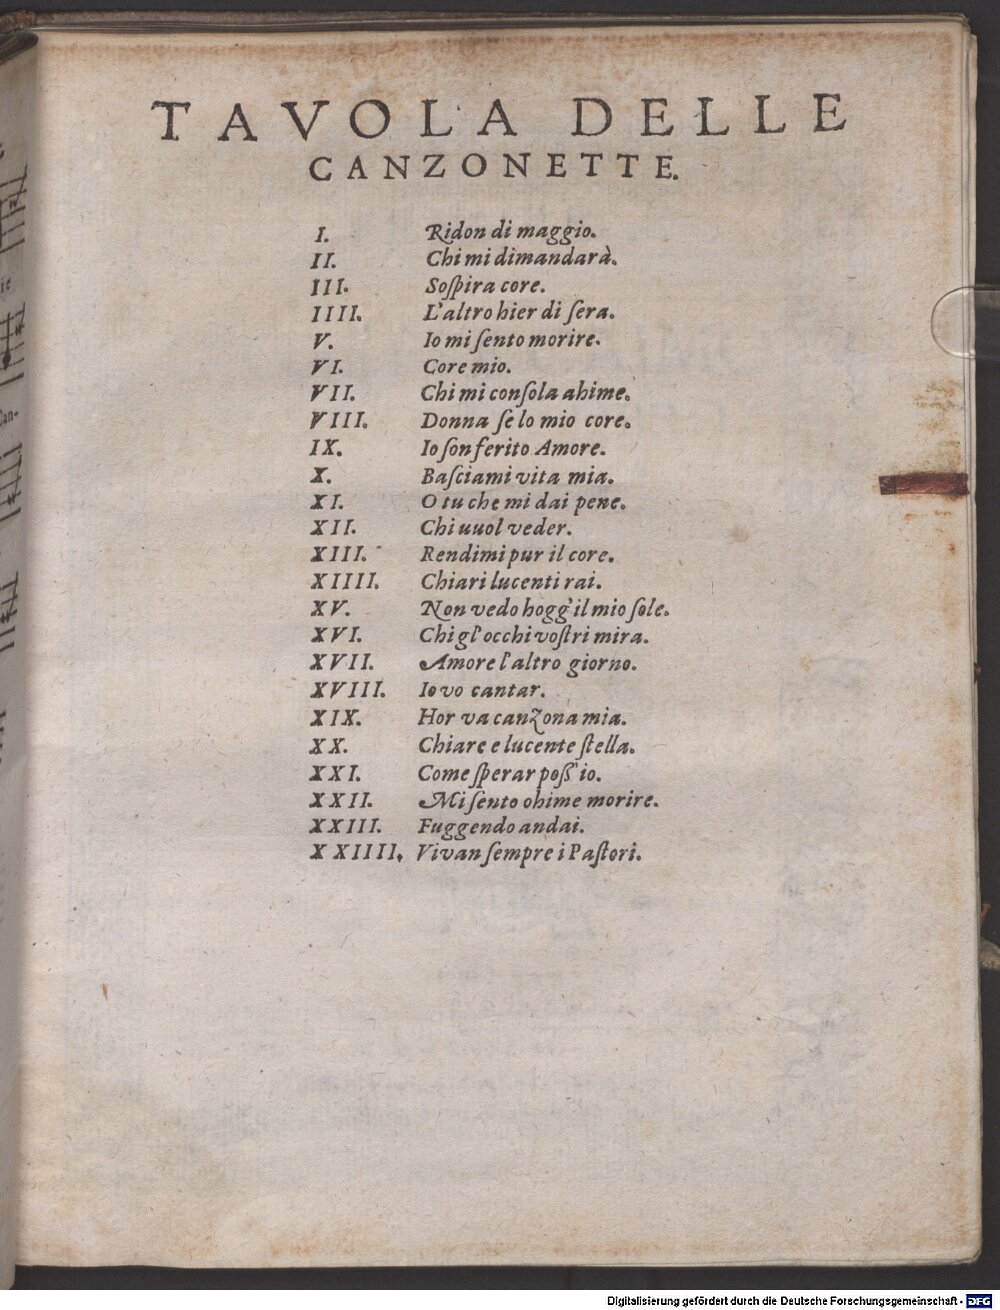 TAVOLA DELLE
CANZONETTE.
I. Ridon di maggio.
II. Chi mi dimandarà.
III. Soſpira core.
IIII. L'altro hier di ſera.
V. Io mi ſento morire.
VI. Core mio.
VII. Chi mi conſola ahime.
VIII. Donna ſe lo mio core.
IX. Io ſon ferito Amore.
X. Baſciami vita mia.
XI. O tu che mi dai pene.
XII. Chi uuol veder.
XIII. Rendimi pur il core.
XIIII. Chiari lucenti rai.
XV. Non vedo hogg'il mio ſole.
XVI. Chi gl'occhi voſtri mira.
XVII. Amore l'altro giorno.
XVIII. Io vo cantar.
XIX. Hor va canzona mia.
XX. Chiare e lucente ſtella.
XXI. Come ſperar poſs'io.
XXII. Mi ſento ohime morire.
XXIII. Fuggendo andai.
XXIIII. Vivan ſempre i Paſtori.
Digitalisierung gefördert durch die Deutsche Forschungsgemeinschaft - DFG